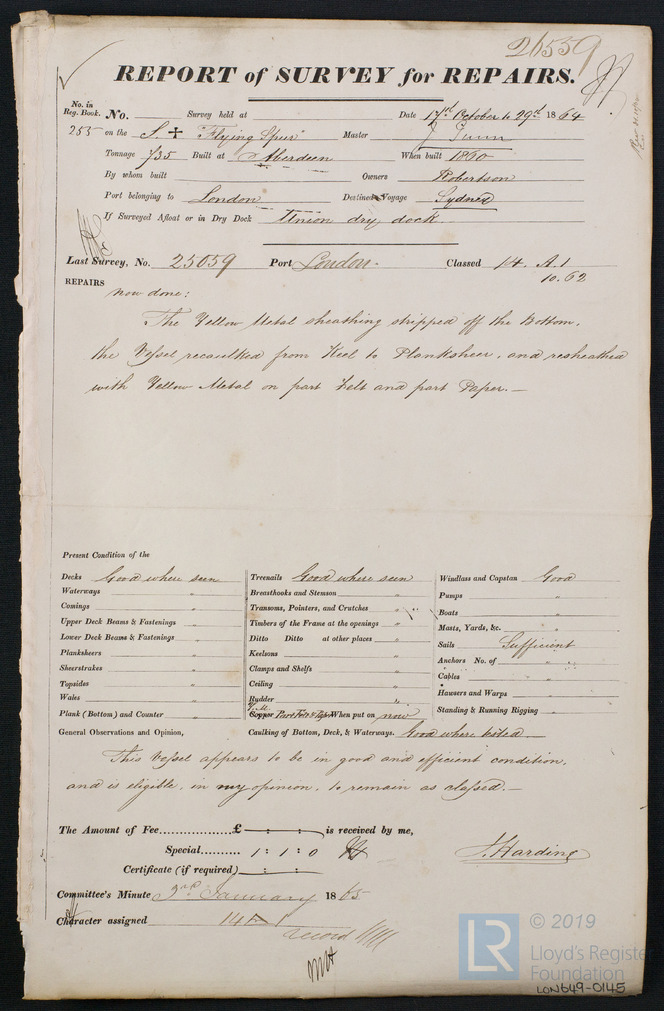 26559
REPORT of SURVEY for REPAIRS.
No. in Reg. Book. No. Survey held at Date 17th October to 29th 1864
255 on the S. + "Flying Spur" Master J Gunn
Tonnage 735 Built at Aberdeen When built 1860
By whom built Owners Robertson
Port belonging to London Destined Voyage Sydney
If Surveyed Afloat or in Dry Dock Union dry dock
Last Survey, No. 25059 Port London. Classed 14 A.1
10.62
REPAIRS
now done:
The Yellow Metal sheathing stripped off the Bottom,
the Vessel recaulked from Keel to Planksheer, and resheathed
with Yellow Metal on part felt and part Paper.—
Present Condition of the
Decks Good where seen
Waterways "
Comings "
Upper Deck Beams & Fastenings "
Lower Deck Beams & Fastenings "
Planksheers "
Sheerstrakes "
Topsides "
Wales "
Plank (Bottom) and Counter "
Treenails Good where seen
Breasthooks and Stemson "
Transoms, Pointers, and Crutches "
Timbers of the Frame at the openings "
Ditto Ditto at other places "
Keelsons "
Clamps and Shelfs "
Ceiling "
Rudder "
Y.M.
Copper Part Felt & Paper When put on now
Windlass and Capstan Good
Pumps "
Boats "
Masts, Yards, &c. "
Sails Sufficient
Anchors No. of " "
Cables "
Hawsers and Warps "
Standing & Running Rigging "
General Observations and Opinion, Caulking of Bottom, Deck, & Waterways. Good where tested
This Vessel appears to be in good and efficient condition,
and is eligible, in my opinion, to remain as classed.—
The Amount of Fee............... £ — : — : — is received by me,
Special.......... 1 : 1 : 0
Certificate (if required) — : — : J. Harding
Committee's Minute 3rd January 1865
Character assigned 14 A 1
record
© 2019
LR
Lloyd's Register
Foundation
LON649-0145